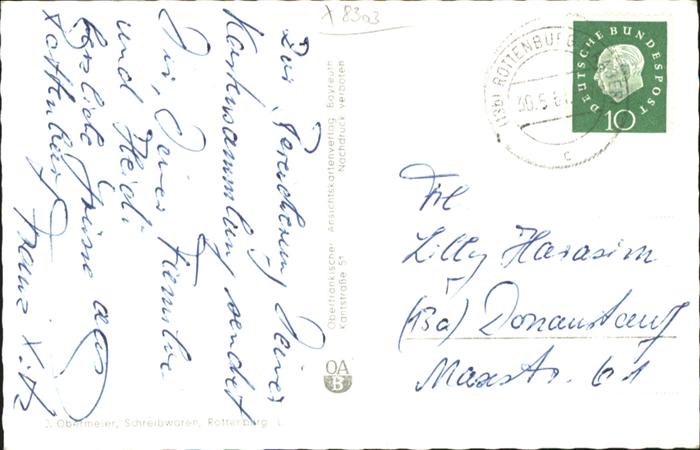 X 8303
Zur Bereicherung Deiner
Kartensammlung sendet
Dir, Deiner Familie
und Heidi
herzliche Grüsse aus
Rottenburg
Franz X.
Oberfränkischer Ansichtskartenverlag Bayreuth
Kantstraße 51 Nachdruck verboten
OA
B
J. Obermeier, Schreibwaren, Rottenburg L.
(13b) ROTTENBURG
30.5.
c
DEUTSCHE BUNDESPOST
10
Lilly Harasim
(13a) Donaustauf
Maxstr. 61